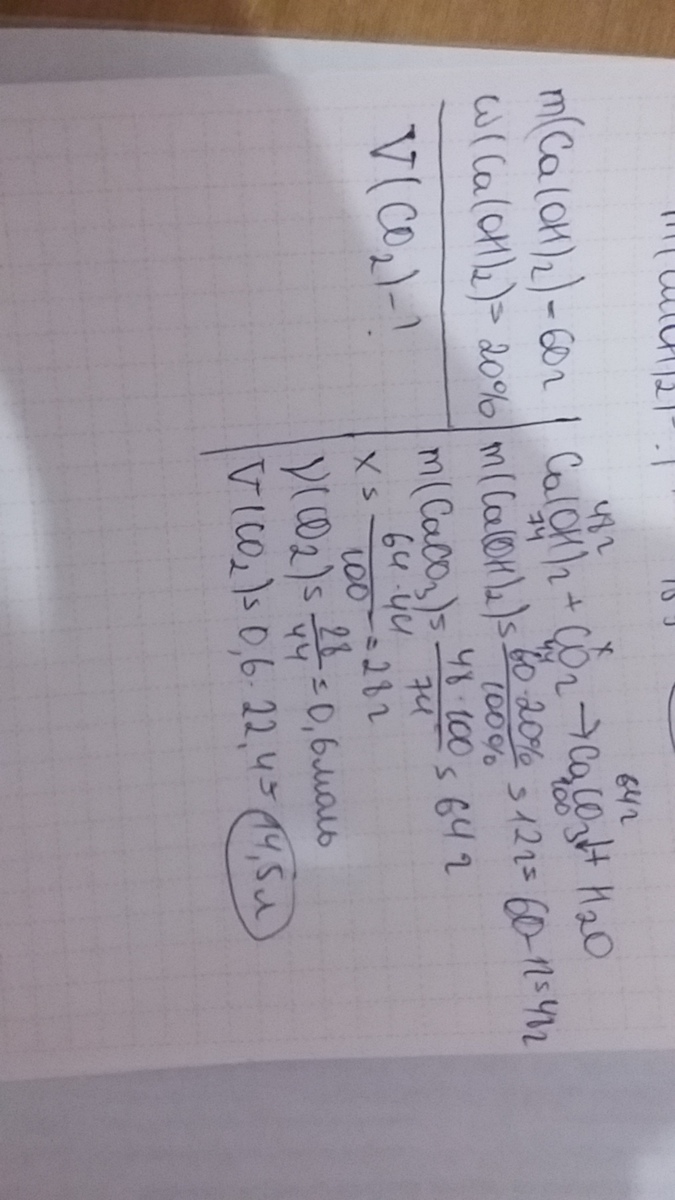 m(Ca(OH)2) - 60г
w(Ca(OH)2) = 20%
V(CO2) - ?
48г x 64г
Ca(OH)2 + CO2 → CaCO3↓ + H2O
74 44 100
m(Ca(OH)2) = 60·20% / 100% = 12г = 60-12=48г
m(CaCO3) = 48·100 / 74 = 64г
x = 64·44 / 100 = 28г
ν(CO2) = 28 / 44 = 0,6моль
V(CO2) = 0,6·22,4 = 14,5л